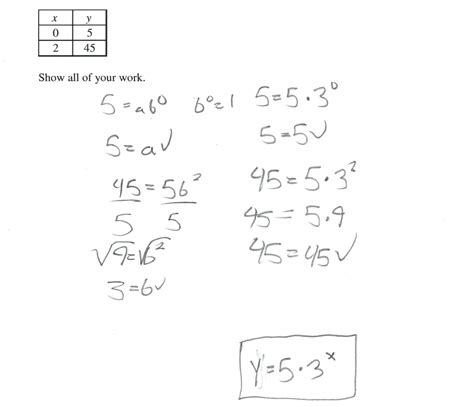 x y
0 5
2 45
Show all of your work.
5 = ab⁰ b⁰ = 1
5 = a ✓
45 = 5b²
5 5
√9 = √b²
3 = b ✓
5 = 5 · 3⁰
5 = 5 ✓
45 = 5 · 3²
45 = 5 · 9
45 = 45 ✓
y = 5 · 3ˣ